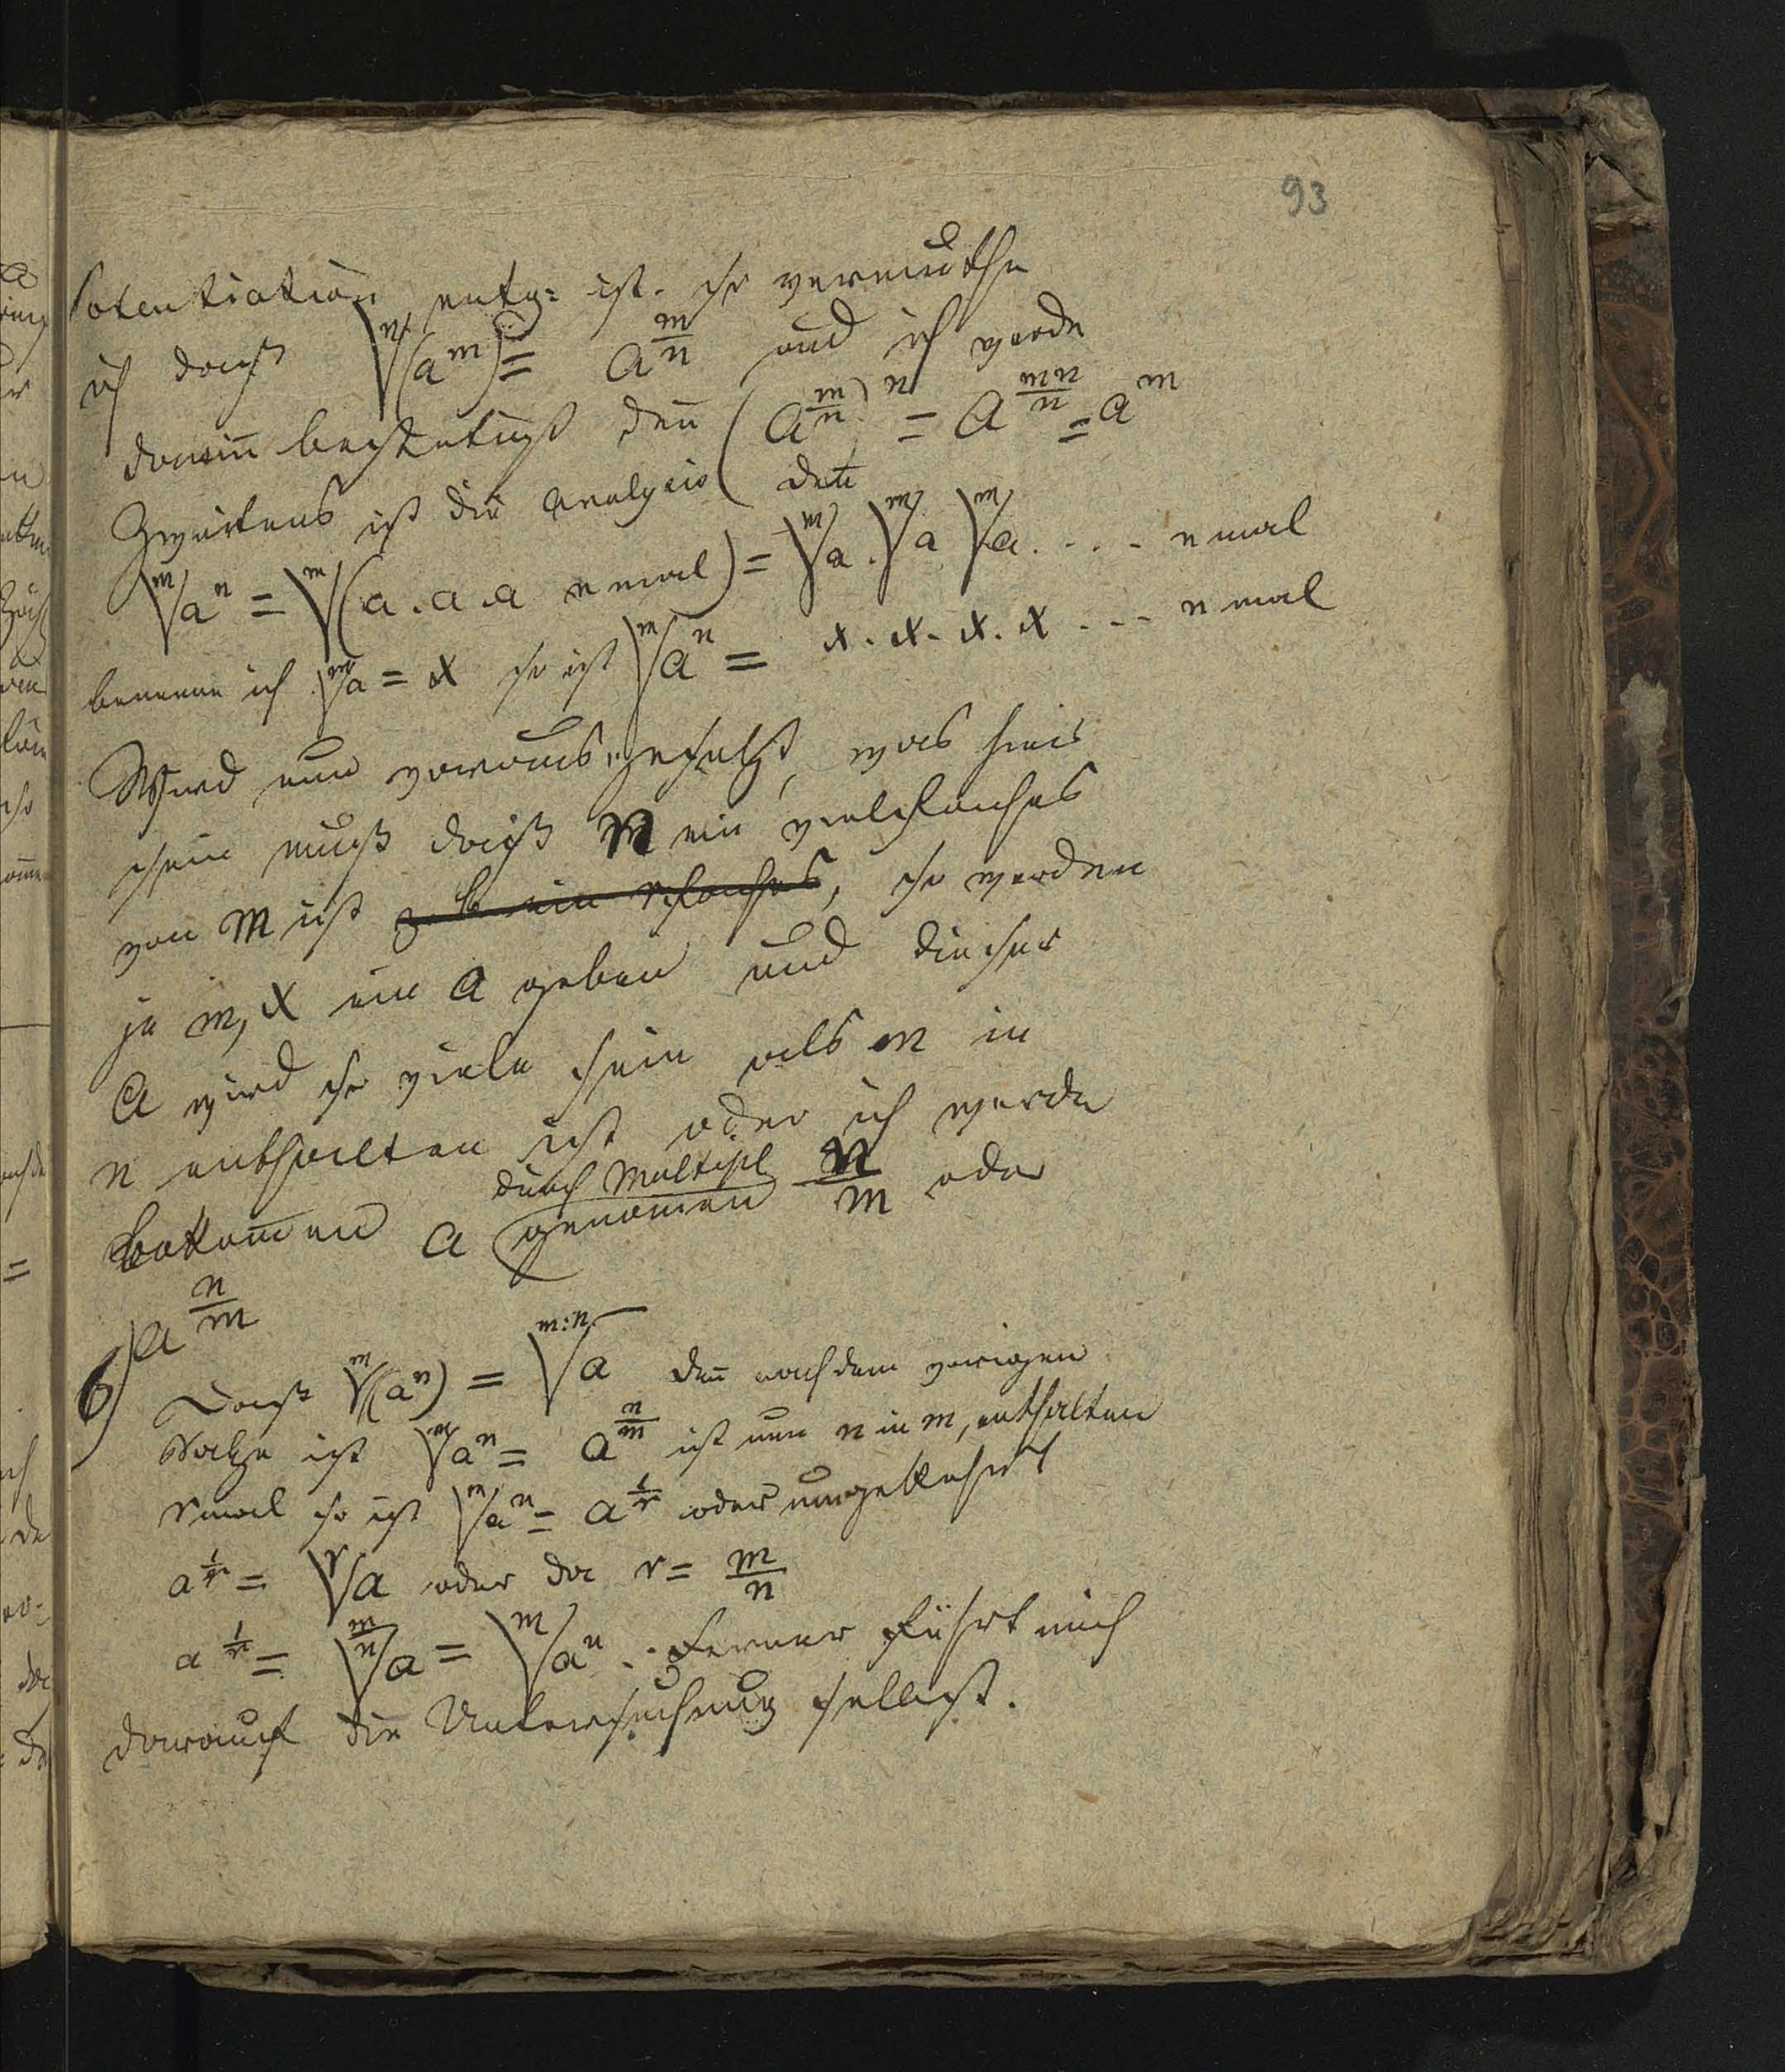 93
Potentiation entg= ist. so vermuthe
ich daß \sqrt[n]{(a^m)} = a^{\frac{m}{n}} und ich werde
darin bestetigt deñ (a^{\frac{m}{n}})^n = a^{\frac{mn}{n}} = a^m
Zweitens ist die analysis deñ
\sqrt[m]{a^n} = \sqrt[m]{(a.a.a n mal)} = \sqrt[m]{a}.\sqrt[m]{a} \sqrt[m]{a}.... n mal
benenne ich \sqrt[m]{a} = x so ist \sqrt[m]{a^n} = x.x.x.x... n mal
Wird nun vorausgesetzt, was hier
sein muß daß n ein vielfaches
von m ist z. b. ein rfaches, so werden
je m, x ein a geben und dieser
a wird so viele sein als m in
n enthalten ist oder ich werde
durch Multipl
bekom̅en a genom̅en \frac{n}{m} oder
a^{\frac{n}{m}}
6) Daß \sqrt[m]{(a^n)} = \sqrt[m:n]{a} deñ nach dem vorigen
Satze ist \sqrt[m]{a^n} = a^{\frac{n}{m}} ist nun n in m, enthalten
r mal so ist \sqrt[m]{a^n} = a^{\frac{1}{r}} oder umgekehrt
a^{\frac{1}{r}} = \sqrt[r]{a} oder da r = \frac{m}{n}
a^{\frac{1}{r}} = \sqrt[\frac{m}{n}]{a} = \sqrt[m]{a^n}. Ferner führt mich
darauf die Untersuchung selbst.